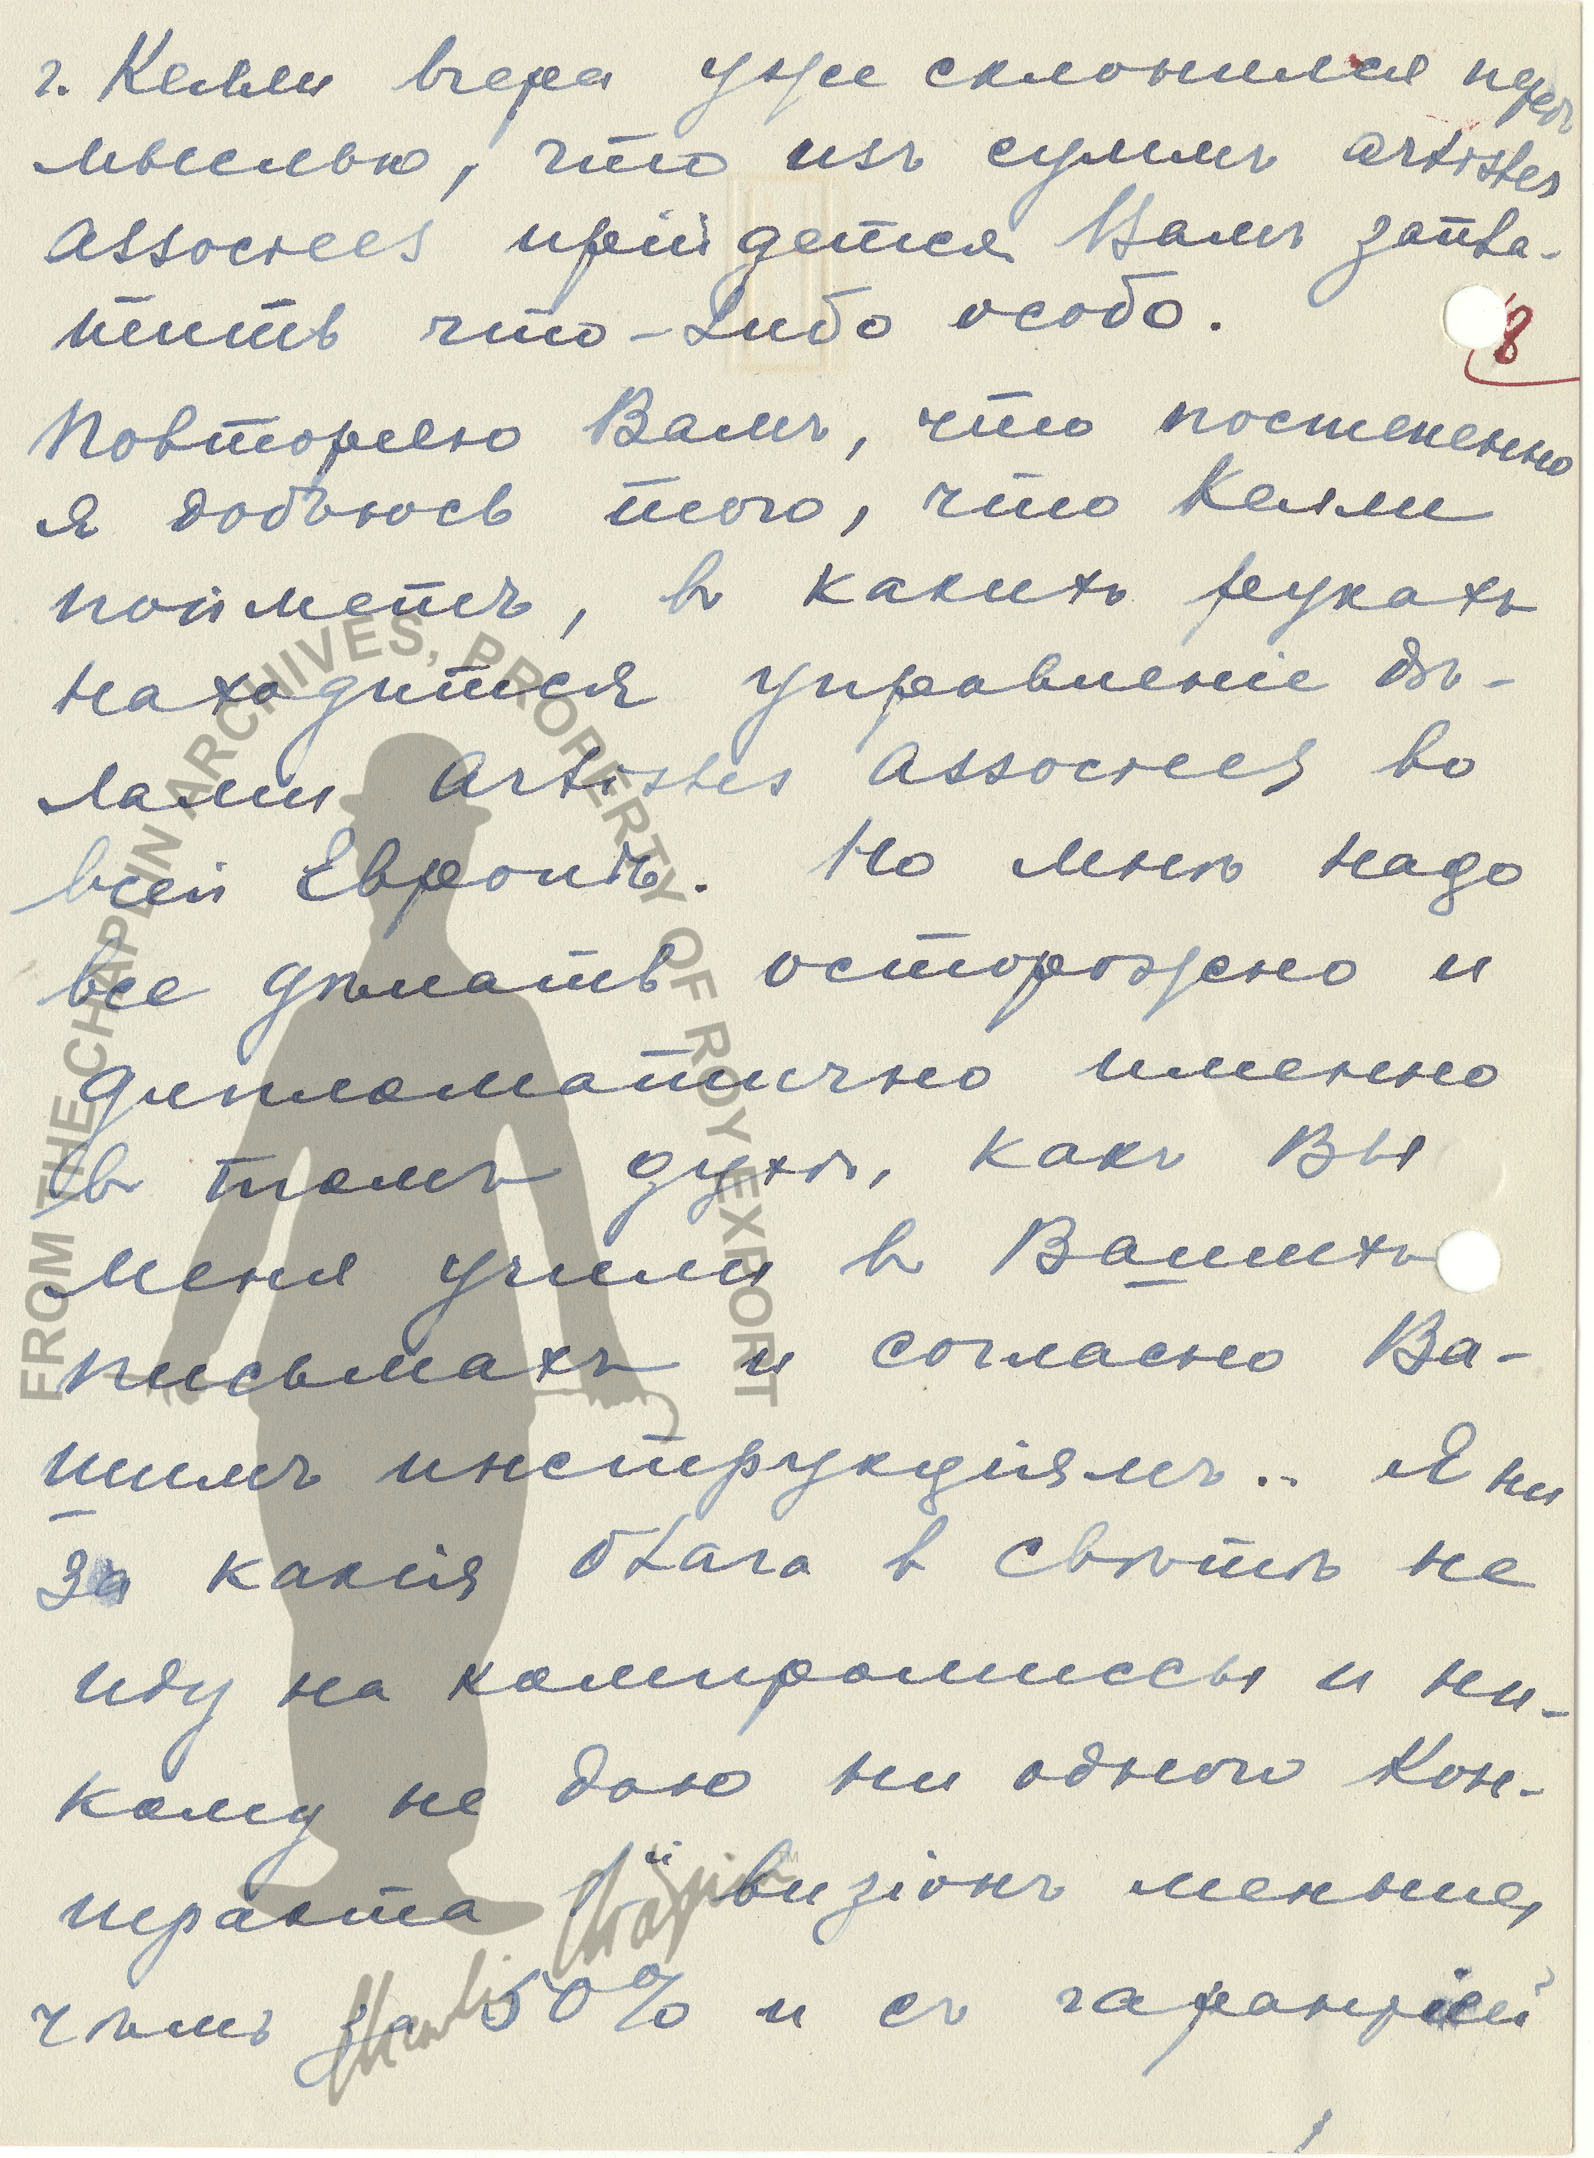 г. Келли вчера уже склонился предъ
мыслью, что изъ суммъ Artistes
Associees прійдется Вамъ запла-
тить что-либо особо.
8
Повторяю Вамъ, что постепенно
я добъюсь того, что Келли
пойметъ, въ какихъ рукахъ
находится управленіе дѣ-
лами Artistes Associees во
всей Европѣ. Но мнѣ надо
все дѣлать осторожно и
дипломатично именно
въ томъ духѣ, какъ Вы
меня учили въ Вашихъ
письмахъ и согласно Ва-
шимъ инструкціямъ.. Я ни
за какія блага в свѣтѣ не
иду на компромиссы и ни-
кому не даю ни одного Кон-
тракта визіонъ меньше,
чѣмъ за 50% и съ гаранціей
FROM THE CHAPLIN ARCHIVES, PROPERTY OF ROY EXPORT
Charlie Chaplin
TM